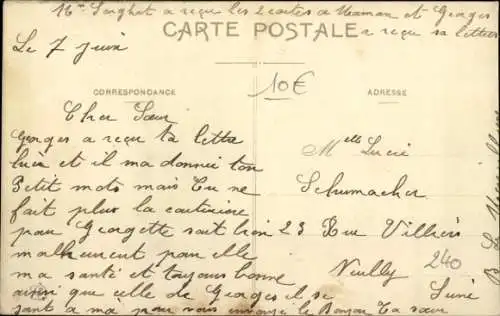 Mme Sorghot a reçu les 2 cartes de Maman et Georges
a reçu sa lettre
CARTE POSTALE
Le 7 Juin
10€
CORRESPONDANCE
ADRESSE
Cher Sœur
Georges a reçu ta lettre
hier et il ma donner ton
Petit mots mais tu ne
fait plus la couturière
pour Georgette sait bien
malheureux pour elle
ma santé et toujours bonne
ainsi que celle de Georges il se
joint a moi pour vous envoyer le Bonjour Ta sœur
Melle Lucie
Schumacher
23 Rue Villiers
Neuilly
240
Seine